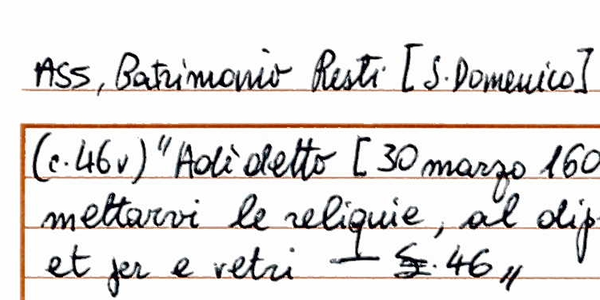 ASS, Patrimonio Resti [S. Domenico]
(c. 46v) "Adì detto [30 marzo 160
mettarvi le reliquie, al dip
et per e vetri — 46"